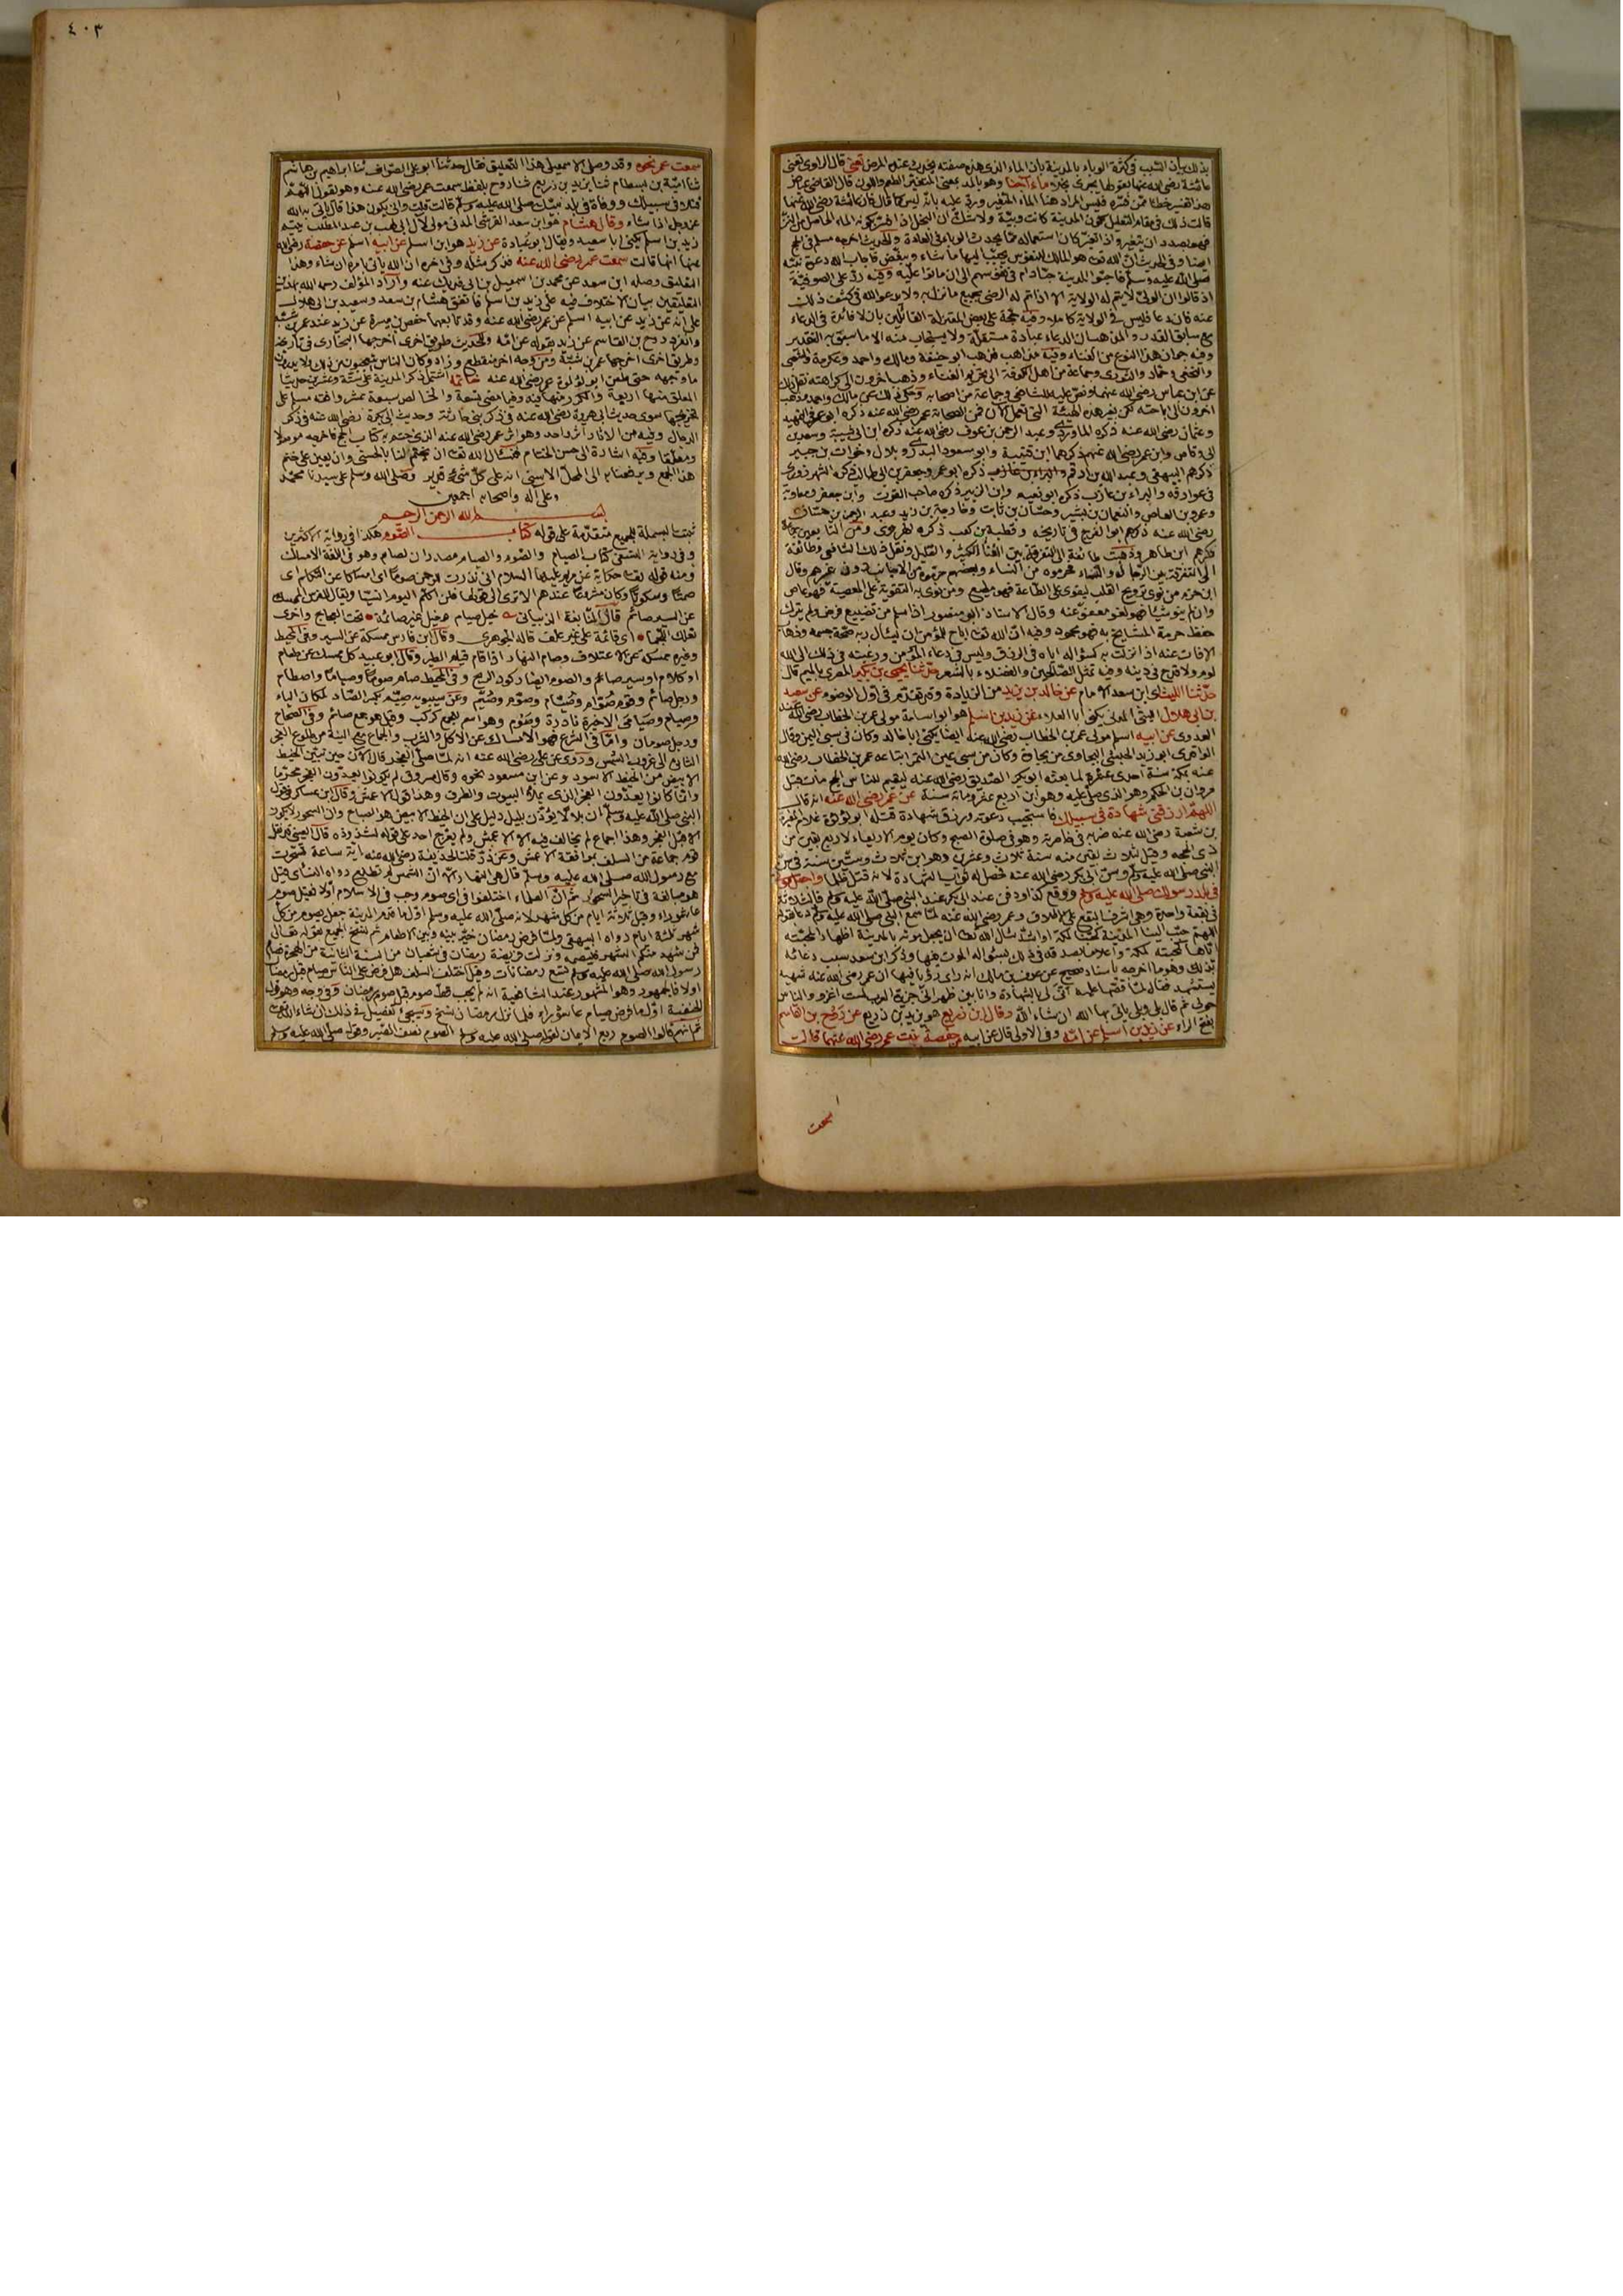 بذلك بيان السبب في كثرة الوباء بالمدينة بان الماء الذي هذه صفته يحدث عنه المرض تعني قال الراوي تعني
عائشة رضي الله عنها بقولها يجرى نجلا ماء آجنا وهو بالمد بمعنى المتغير الطعم واللون قال القاضي عياض
هذا تفسير خطأ ممن فسره فليس المراد هنا الماء المتغير ورد عليه بانه ليس كما قال فان عائشة رضي الله عنها
قالت ذلك في مقام التعليل لكون المدينة كانت وبيئة ولا شك ان النجل اذا فسر بكونه الماء الحاصل من النز
فهو بصدد ان يتغير واذا تغير كان استعماله مما يحدث الوباء في العادة والحديث اخرجه مسلم في الحج
ايضا وفي الحديث ان الله تعالى هو المالك للنفوس يحبب اليها ما شاء ويبغض فاجاب الله دعوة نبيه
صلى الله عليه وسلم فاحبوا المدينة حبا دام في نفوسهم الى ان ماتوا عليه وفيه رد على الصوفية
اذ قالوا ان الولي لا يتم له الولاية الا اذا تم له الرضى بجميع ما نزل به ولا يدعو الله في كشف ذلك
عنه فان دعا فليس في الولاية كاملا وفيه حجة على بعض المعتزلة القائلين بان لا فائدة في الدعاء
مع سابق القدر والمذهب ان الدعاء عبادة مستقلة ولا يستجاب منه الا ما سبق به التقدير
وفيه جواز هذا النوع من الغناء وفيه مذاهب فذهب ابو حنيفة ومالك واحمد وعكرمة والشعبي
والنخعي وحماد والثوري وجماعة من اهل الكوفة الى تحريم الغناء وذهب اخرون الى كراهته نقل ذلك
عن ابن عباس رضي الله عنهما ونص عليه الشافعي وجماعة من اصحابه وحكي ذلك عن مالك واحمد وذهب
اخرون الى اباحته لكن بغير هذه الهيئة التي تعمل الآن فمن الصحابة عمر رضي الله عنه ذكره ابو عمر في التمهيد
وعثمان رضي الله عنه ذكره الماوردي وعبد الرحمن بن عوف رضي الله عنه ذكره ابن ابي شيبة وسعد بن
ابي وقاص وابن عمر رضي الله عنهم ذكرهما ابن قتيبة وابو مسعود البدري وبلال وخوات بن جبير
ذكرهم البيهقي وعبد الله بن ارقم ذكره ابو عمر وجعفر بن ابي طالب ذكره السهروردي
في عوارفه والبراء بن عازب ذكره ابو نعيم وابن الزبير ذكره صاحب القوت وابن جعفر ومعاوية
وعمرو بن العاص والنعمان بن بشير وحسان بن ثابت وخارجة بن زيد وعبد الرحمن بن حسان
رضي الله عنه ذكرهم ابو الفرج في تاريخه وقطبة بن كعب ذكره الهروي ومن التابعين جماعة
ذكرهم ابن طاهر وذهبت طائفة الى التفرقة بين الغناء الكثير والقليل ونقل ذلك الشافعي وطائفة
الى التفرقة بين الرجال والنساء فحرموه من النساء وبعضهم حرموه من الاجانب دون غيرهم وقال
ابن حزم من نوى ترويح القلب ليقوى على الطاعة فهو مطيع ومن نوى به التقوية على المعصية فهو عاص
وان لم ينو شيئا فهو لغو معفو عنه وقال الاستاذ ابو منصور اذا سلم من تضييع فرض ولم يترك
حفظ حرمة المشايخ به فهو محمود وفيه ان الله تعالى اباح للمؤمن ان يسأل ربه صحة جسمه وذهاب
الآفات عنه اذا نزلت به كسؤاله اياه في الرزق وليس في دعاء المؤمن ورغبته في ذلك الى الله
لوم ولا قدح في دينه وفيه تمثل الصالحين والفضلاء بالشعر حدثنا يحيى بن بكير المصري بالميم قال
حدثنا الليث اي ابن سعد الامام عن خالد بن يزيد من الزيادة وقد تقدم في اول الوضوء عن سعيد
بن ابي هلال الليثي المدني يكنى ابا العلاء عن زيد بن اسلم هو ابو اسامة مولى عمر بن الخطاب رضي الله عنه
العدوي عن ابيه اسلم مولى عمر بن الخطاب رضي الله عنه ايضا يكنى ابا خالد وكان من سبي اليمن وقال
الواقدي ابو زيد الحبشي البجاوي من بجاوة وكان من سبي عين التمر ابتاعه عمر بن الخطاب رضي الله
عنه بمكة سنة احدى عشرة لما بعثه ابو بكر الصديق رضي الله عنه ليقيم للناس الحج مات قبل
مروان بن الحكم وهو الذي صلى عليه وهو ابن اربع عشرة ومائة سنة عن عمر رضي الله عنه انه قال
اللهم ارزقني شهادة في سبيلك فاستجيب دعوته ورزق شهادة قتله ابو لؤلؤة غلام المغيرة
بن شعبة رضي الله عنه ضربه في خاصرته وهو في صلوة الصبح وكان يوم الاربعاء لاربع بقين من
ذي الحجة وقيل لثلاث بقين منه سنة ثلاث وعشرين وهو ابن ثلاث وستين سنة في سن
النبي صلى الله عليه وسلم وسن ابي بكر رضي الله عنه فحصل له ثواب الشهادة لانه قتل ظلما واجعل موتي
في بلد رسولك صلى الله عليه وسلم ووقع كذا ودفن عند ابي بكر عند النبي صلى الله عليه وسلم فالثلاثة
في بقعة واحدة وهي اشرف البقاع على الاطلاق وعمر رضي الله عنه لما سمع النبي صلى الله عليه وسلم دعا بقوله
اللهم حبب الينا المدينة كحبنا مكة او اشد سأل الله تعالى ان يجعل موته بالمدينة اظهارا لمحبته
اياها كمحبته لمكة واعلاما بصدقه في ذلك بسؤاله الموت فيها وذكر ابن سعد سبب دعائه
بذلك وهو ما اخرجه باسناد صحيح عن عوف بن مالك انه رأى رؤيا فيها ان عمر رضي الله عنه شهيد
يستشهد فقال لما قصها عليه انى لي بالشهادة وانا بين ظهراني جزيرة العرب لست اغزو والناس
حولي ثم قال بلى وبلى يأتي بها الله ان شاء الله وقال ابن زريع هو يزيد بن زريع عن روح بن القاسم
بفتح الراء عن زيد بن اسلم عن امه وفي الاولى قال عن ابيه عن حفصة بنت عمر رضي الله عنهما قالت
سمعت
٤٠٣
سمعت عمر نحوه وقد وصل الاسمعيلي هذا التعليق فقال حدثنا ابو علي الصواف ثنا ابراهيم بن هاشم
ثنا امية بن بسطام ثنا يزيد بن زريع ثنا روح بلفظ سمعت عمر رضي الله عنه وهو يقول اللهم
قتلا في سبيلك ووفاة في بلد نبيك صلى الله عليه وسلم قالت قلت وانى يكون هذا قال يأتي به الله
عز وجل اذا شاء وقال هشام هو ابن سعد القرشي المدني مولى لآل ابي لهب بن عبد المطلب
زيد بن اسلم يكنى ابا سعيد ويقال ابو عبادة عن زيد هو ابن اسلم عن ابيه اسلم عن حفصة رضي الله
عنها انها قالت سمعت عمر رضي الله عنه فذكر مثله وفي اخره ان الله يأتي بامره ان شاء وهذا
التعليق وصله ابن سعد عن محمد بن اسمعيل بن ابي فديك عنه واراد المؤلف رحمه الله بهذين
التعليقين بيان الاختلاف فيه على زيد بن اسلم فاتفق هشام بن سعد وسعيد بن ابي هلال
على انه عن زيد عن ابيه اسلم عن عمر رضي الله عنه وقد تابعهما حفص بن ميسرة عن زيد عند عمر بن شبة
وانفرد روح بن القاسم عن زيد بقوله عن امه وللحديث طريق اخرى اخرجها البخاري في تاريخه
وطريق اخرى اخرجها عمر بن شبة ومن وجه اخر منقطع وزاد وكان الناس يتعجبون من ذلك ولا يدرون
ما وجهه حتى طعن ابو لؤلؤة عمر رضي الله عنه خاتمة اشتمل ذكر المدينة على ستة وعشرين حديثا
المعلق منها اربعة والمكرر منها فيه وفيما مضى تسعة والخالص سبعة عشر وافقه مسلم على
تخريجها سوى حديث ابي هريرة رضي الله عنه في ذكر بني حارثة وحديث ابي بكرة رضي الله عنه في ذكر
الدجال وفيه من الآثار اثر واحد وهو اثر عمر رضي الله عنه الذي ختم به كتاب الحج فاخرجه موصولا
ومعلقا وفيه اشارة الى حسن الختام فنسأل الله تعالى ان يختم لنا بالحسنى وان يعين على ختم
هذا الجمع ويرفعنا به الى المحل الاسنى انه على كل شيء قدير وصلى الله وسلم على سيدنا محمد
وعلى آله واصحابه اجمعين
بسم الله الرحمن الرحيم
ثبتت البسملة للجميع متقدمة على قوله كتاب الصوم هكذا في رواية الاكثرين
وفي رواية النسفي كتاب الصيام والصوم والصيام مصدران لصام وهو في اللغة الامساك
ومنه قوله تعالى حكاية عن مريم عليها السلام اني نذرت للرحمن صوما اي امساكا عن الكلام اي
صمتا وسكوتا وكان مشروعا عندهم الا ترى الى قولها فلن اكلم اليوم انسيا ويقال للفرس الممسك
عن السير صائم قال النابغة الذبياني خيل صيام وخيل غير صائمة تحت العجاج واخرى
تعلك اللجما اي قائمة على غير علف قاله الجوهري وقال ابن فارس ممسكة عن السير وفي المحيط
وغيره ممسكة عن الاعتلاف وصام النهار اذا قام قيام الظهيرة وقال ابو عبيد كل ممسك عن طعام
او كلام او سير صائم والصوم ايضا ركود الريح وفي المحيط صام صوما وصياما واصطام
ورجل صائم وقوم صوام وصيام وصوم وصيم وعن سيبويه صيم بكسر الصاد لمكان الياء
وصيام وصيامى الاخيرة نادرة وصوم وهو اسم للجمع كركب وقيل هو جمع صائم وفي الصحاح
ورجل صومان واما في الشرع فهو الامساك عن الاكل والشرب والجماع مع النية من طلوع الفجر
الثاني الى غروب الشمس وروي عن علي رضي الله عنه انه لما صلى الفجر قال الآن حين تبين الخيط
الابيض من الخيط الاسود وعن ابن مسعود نحوه وقال مسروق لم يكونوا يعدون الفجر فجركم
وانما كانوا يعدون الفجر الذي يملأ البيوت والطرق وهذا قول الاعمش وقال ابن عساكر في قول
النبي صلى الله عليه وسلم ان بلالا يؤذن بليل دليل على ان الخيط الابيض هو الصباح وان السحور لا يكون
الا قبل الفجر وهذا اجماع لم يخالف فيه الا الاعمش ولم يعرج احد على قوله لشذوذه قال العيني قد نقل
قوم جماعة من السلف بموافقة الاعمش وعن زر قلت لحذيفة رضي الله عنه اية ساعة تسحرت
مع رسول الله صلى الله عليه وسلم قال هي النهار الا ان الشمس لم تطلع رواه النسائي وقيل
هو مبالغة في تأخير السحور ثم ان العلماء اختلفوا في اي صوم وجب في الاسلام اولا فقيل صوم
عاشوراء وقيل ثلاثة ايام من كل شهر لانه صلى الله عليه وسلم اول ما قدم المدينة جعل يصوم من كل
شهر ثلثة ايام رواه البيهقي ولما فرض رمضان خير بينه وبين الاطعام ثم نسخ الجميع بقوله تعالى
فمن شهد منكم الشهر فليصمه ونزلت فريضة رمضان في شعبان من السنة الثانية من الهجرة فصام
رسول الله صلى الله عليه وسلم تسع رمضانات وقيل اختلف السلف هل فرض على الناس صيام قبل رمضان
اولا فالجمهور وهو المشهور عند الشافعية انه لم يجب قط صوم قبل صوم رمضان وفي وجه وهو قول
الحنفية اول ما فرض صيام عاشوراء فلما نزل رمضان نسخ وسيجيء تفصيل في ذلك ان شاء الله تعالى
ثم انهم قالوا الصوم ربع الايمان لقوله صلى الله عليه وسلم الصوم نصف الصبر وقوله صلى الله عليه وسلم